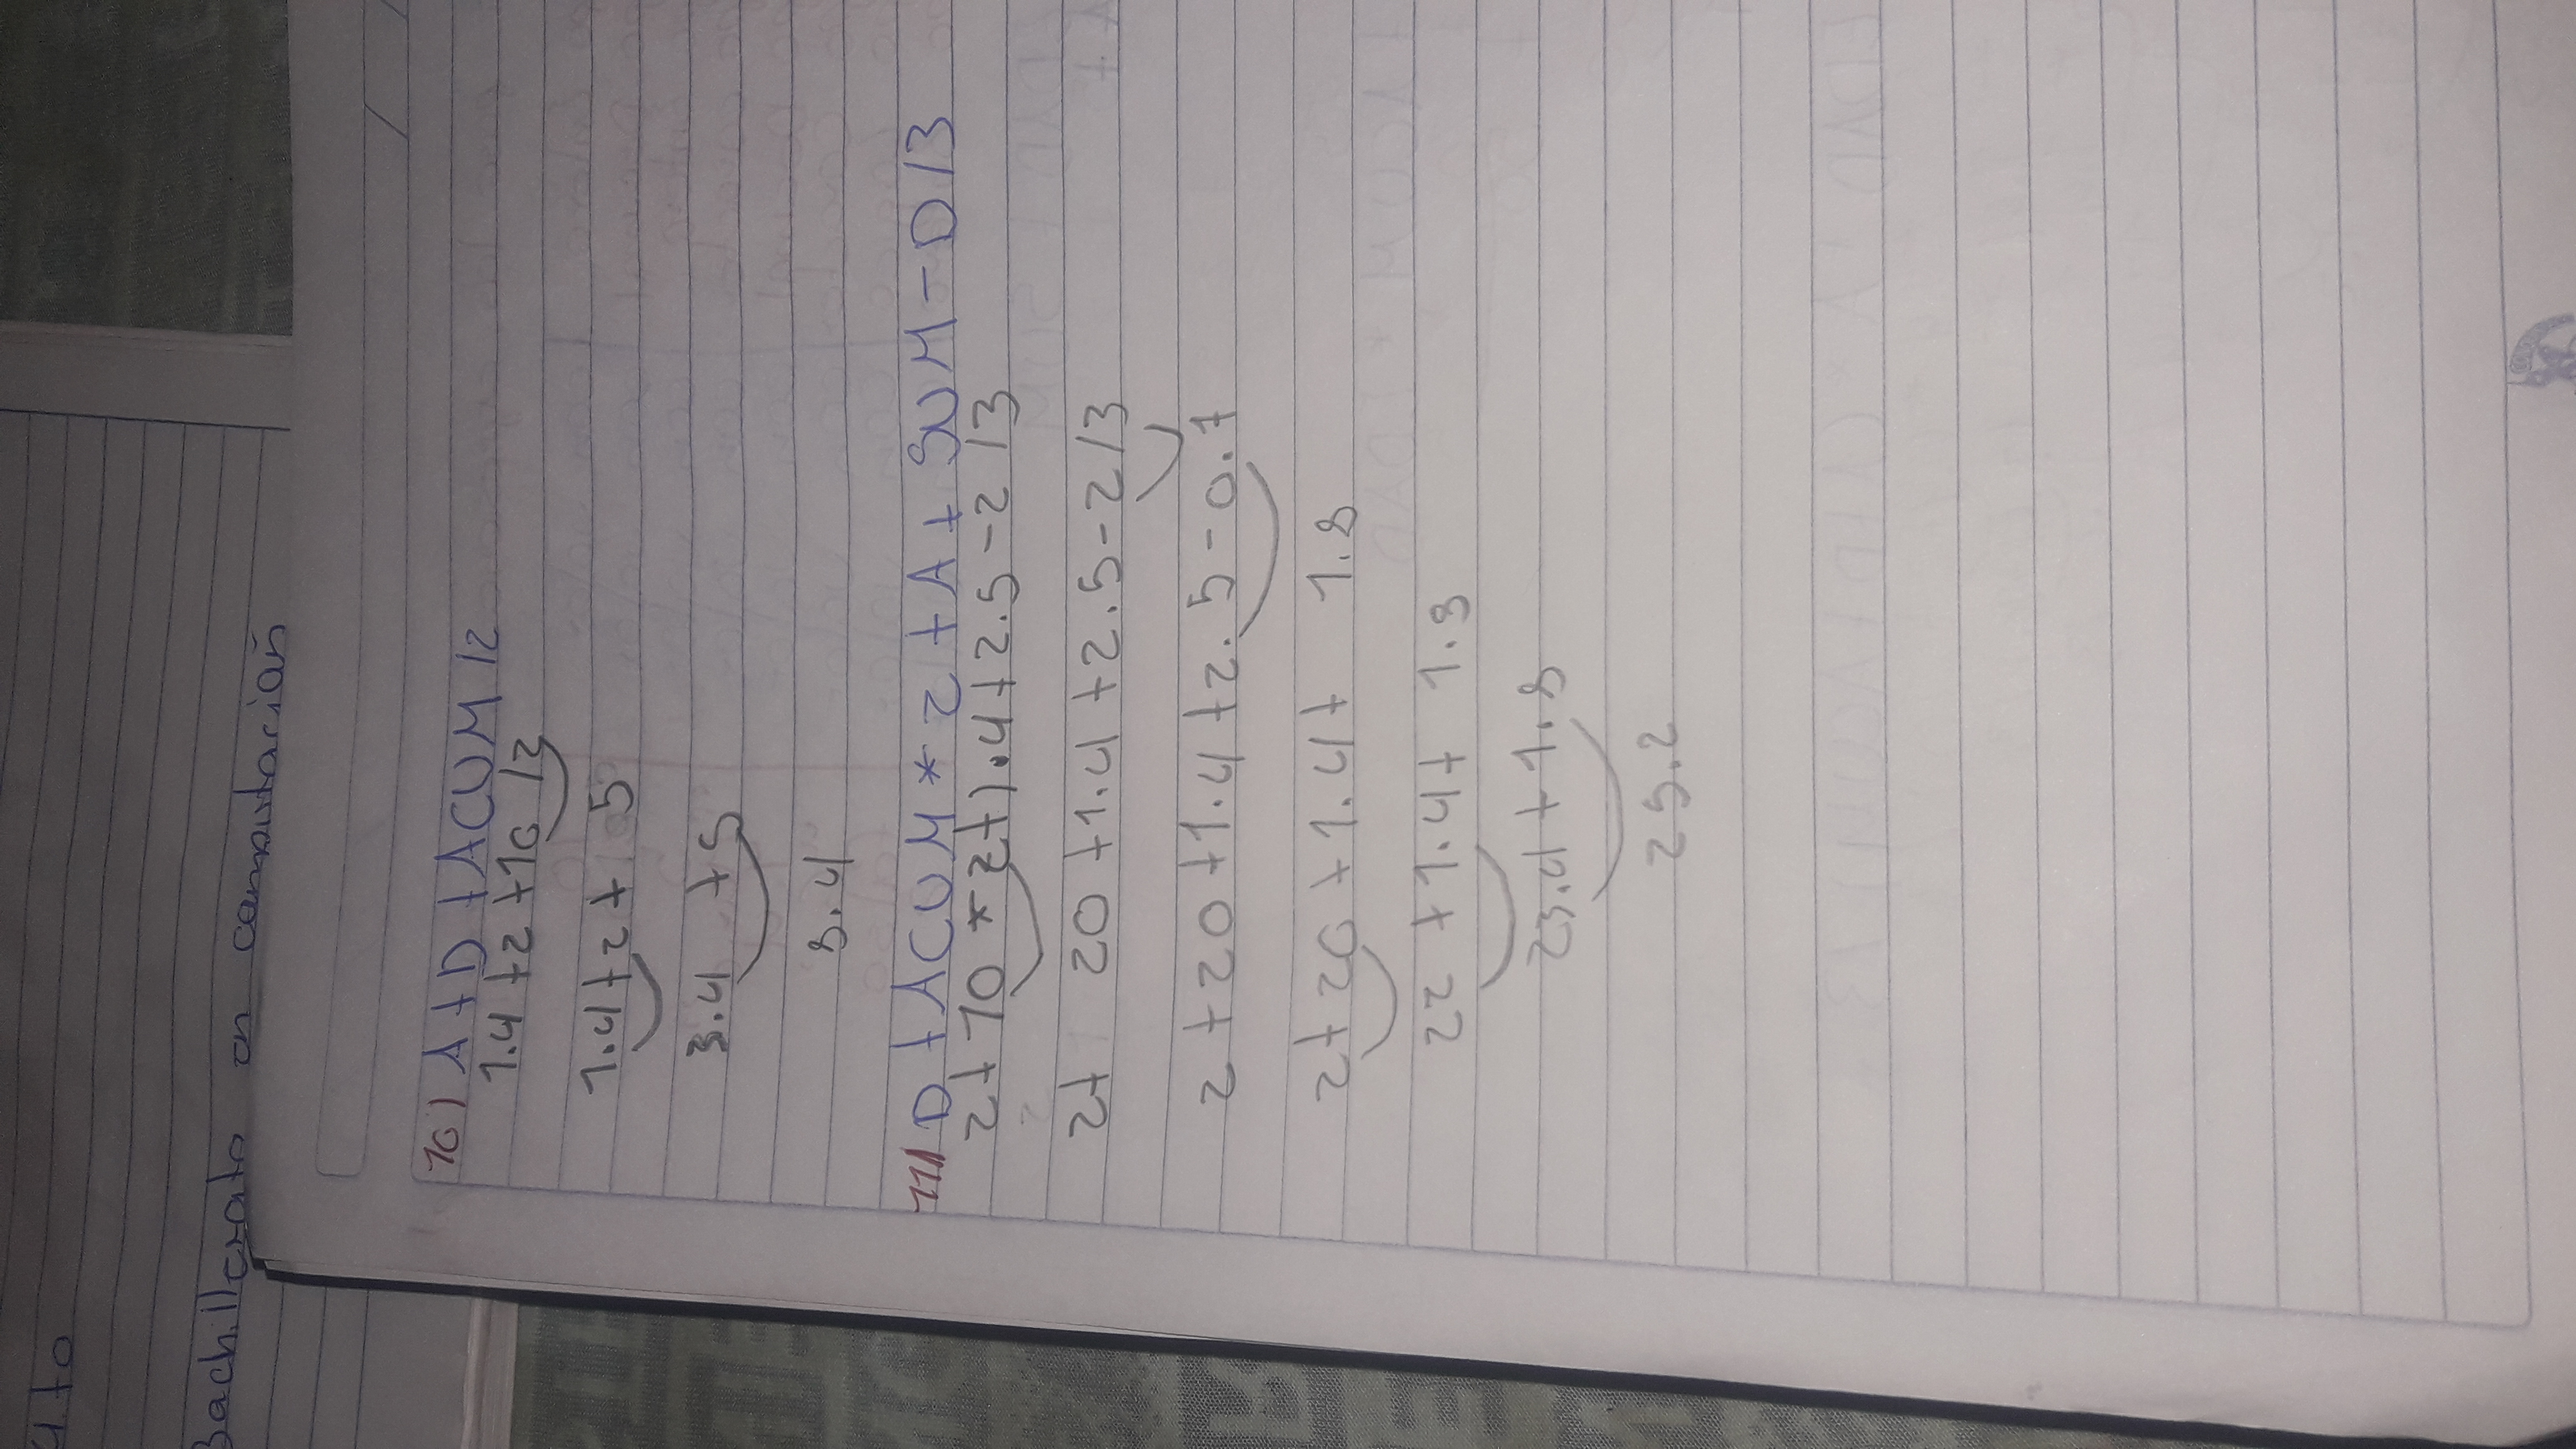 4to
Bachillerato en computación
10) A+D+ACUM/2
1.4+2+10/2
1.4+2+5
3.4+5
8.4
11) D+ACUM*2+A+SUM-D/3
2+10*2+1.4+2.5-2/3
2+ 20+1.4+2.5-2/3
2+20+1.4+2.5-0.7
2+20+1.4+ 1.8
22+1.4+ 1.8
23.4+1.8
25.2